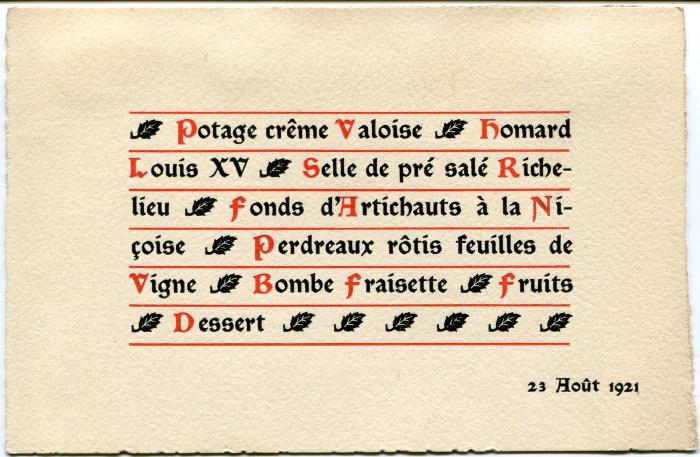 Potage crême Valoise Homard
Louis XV Selle de pré salé Riche-
lieu Fonds d'Artichauts à la Ni-
çoise Perdreaux rôtis feuilles de
Vigne Bombe Fraisette Fruits
Dessert
23 Août 1921